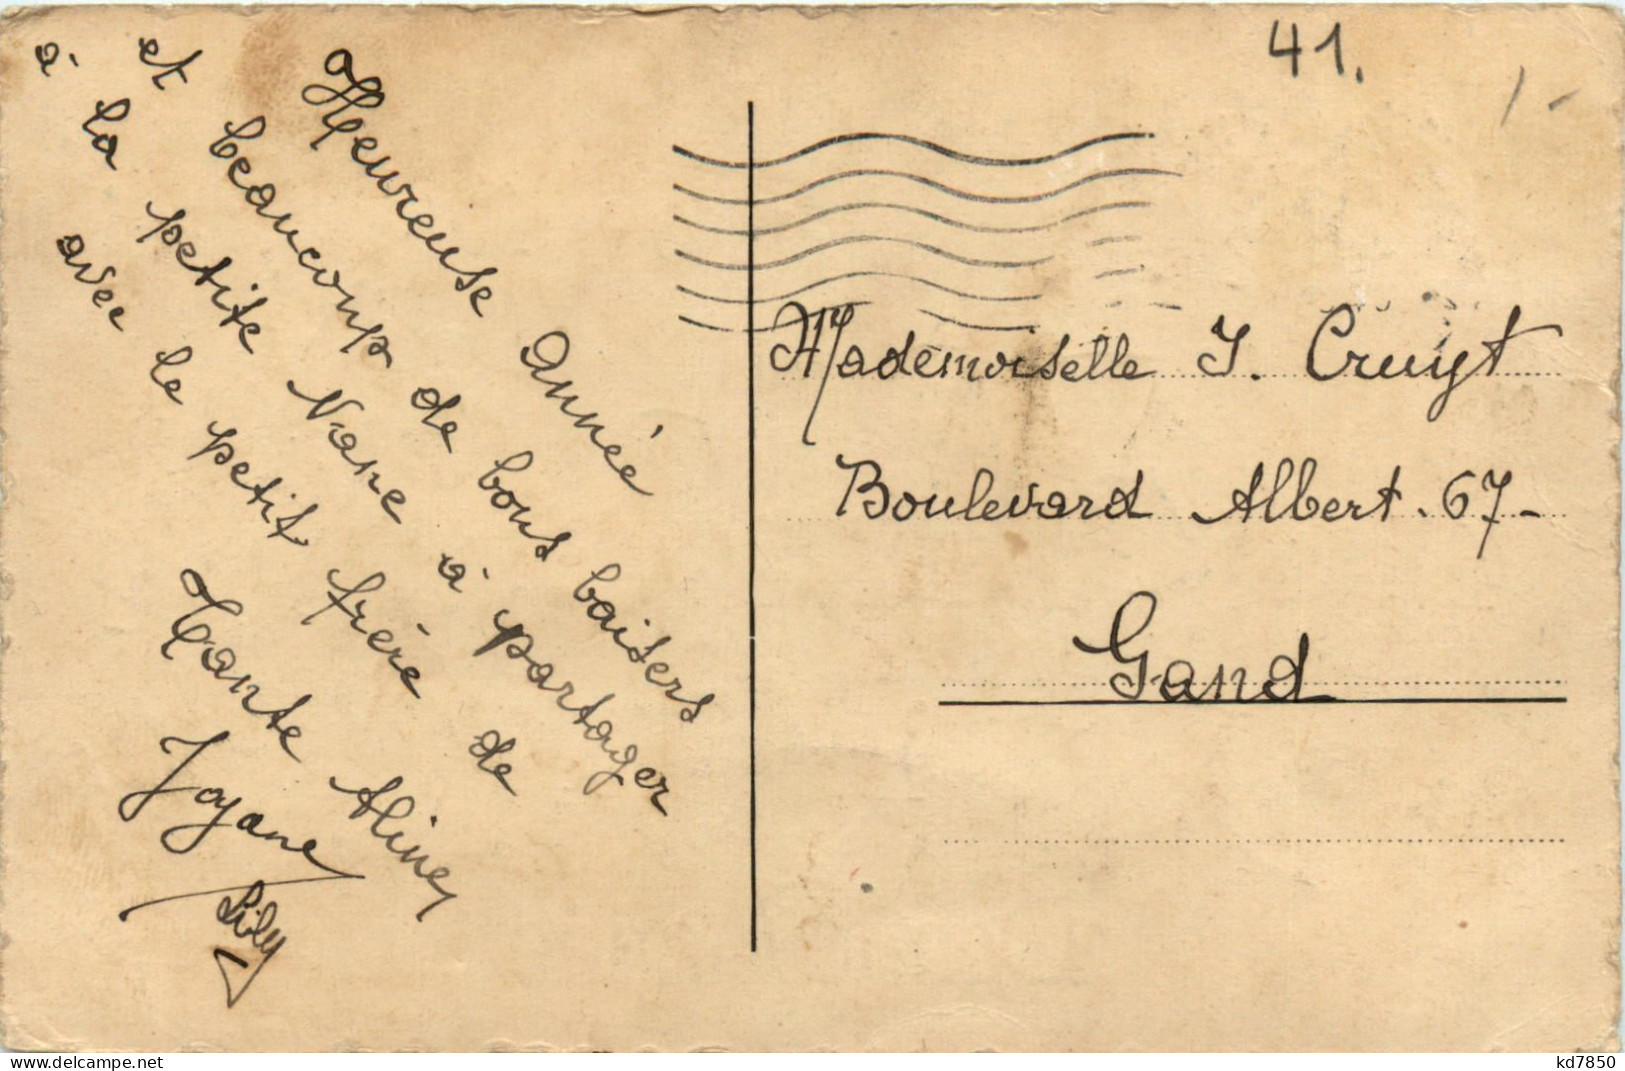 41.
Heureuse Année
et beaucoup de bons baisers
à la petite Nane à partager
avec le petit frère de
Tante Aline
Joyane
Lily
Mademoiselle J. Cruyt
Boulevard Albert. 67-
Gand
delcampe.net
kd7850